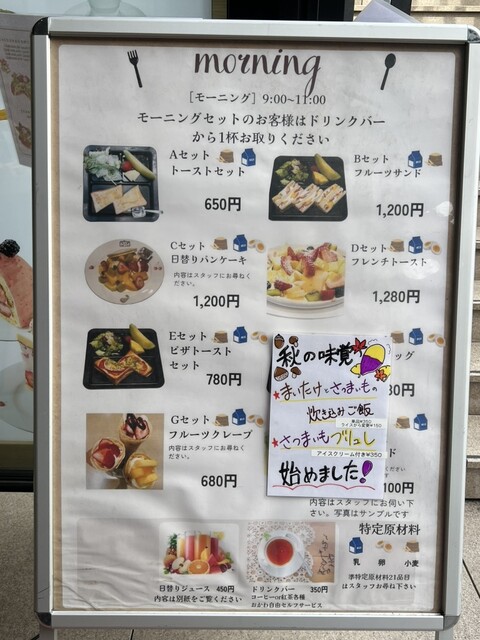 morning
[モーニング] 9:00~11:00
モーニングセットのお客様はドリンクバー
から1杯お取りください
Aセット
トーストセット
650円
Bセット
フルーツサンド
1,200円
Cセット
日替りパンケーキ
内容はスタッフにお尋ねく
ださい。
1,200円
Dセット
フレンチトースト
1,280円
Eセット
ピザトースト
セット
780円
ッグ
80円
Gセット
フルーツクレープ
内容はスタッフにお尋ねく
ださい。
680円
ド
ださい
100円
秋の味覚
★まいたけとさつまいもの
炊き込みご飯
単品¥350
ライスから変更¥150
★さつまいもブリュレ
アイスクリーム付き¥350
始めました!
内容はスタッフにお伺い下
さい。写真はサンプルです
特定原材料
乳 卵 小麦
準特定原材料21品目
はスタッフお尋ね下さい
日替りジュース 450円
内容は別紙をご覧ください
ドリンクバー 350円
コーヒーor紅茶各種
おかわ自由セルフサービス